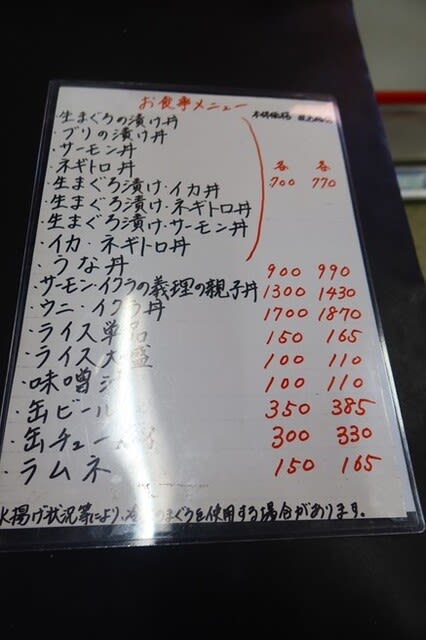 お食事メニュー 本体価格 税込価格
・生まぐろの漬け丼
・ブリの漬け丼
・サーモン丼
・ネギトロ丼 各 各
・生まぐろ漬け・イカ丼 700 770
・生まぐろ漬け・ネギトロ丼
・生まぐろ漬け・サーモン丼
・イカ・ネギトロ丼
・うな丼 900 990
・サーモン・イクラの義理の親子丼 1300 1430
・ウニ・イクラ丼 1700 1870
・ライス単品 150 165
・ライス大盛 100 110
・味噌汁 100 110
・缶ビール 350 385
・缶チューハイ 300 330
・ラムネ 150 165
水揚げ状況等により、冷凍のまぐろを使用する場合があります。